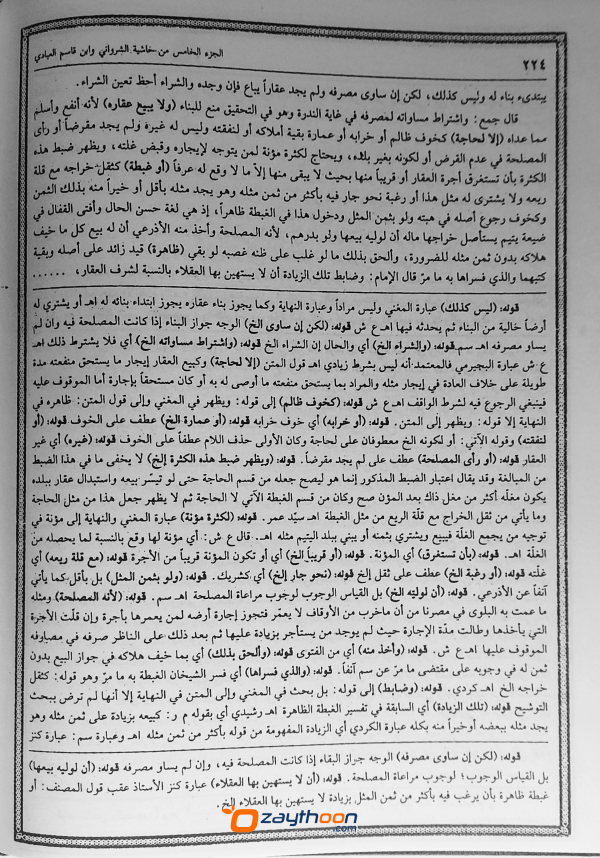 ٢٢٤
الجزء الخامس من حاشية الشرواني وابن قاسم العبادي
يبتدىء بناء له وليس كذلك، لكن إن ساوى مصرفه ولم يجد عقاراً يباع فإن وجده والشراء أحظ تعين الشراء.
قال جمع: واشتراط مساواته لمصرفه في غاية الندرة وهو في التحقيق منع للبناء (ولا يبيع عقاره) لأنه أنفع وأسلم
مما عداه (إلا لحاجة) كخوف ظالم أو خرابه أو عمارة بقية أملاكه أو لنفقته وليس له غيره ولم يجد مقرضاً أو رأى
المصلحة في عدم القرض أو لكونه بغير بلده، ويحتاج لكثرة مؤنة لمن يتوجه لإيجاره وقبض غلته، ويظهر ضبط هذه
الكثرة بأن تستغرق أجرة العقار أو قريباً منها بحيث لا يبقى منها إلاّ ما لا وقع له عرفاً (أو غبطة) كثقل خراجه مع قلة
ريعه ولا يشترى له مثل هذا أو رغبة نحو جار فيه بأكثر من ثمن مثله وهو يجد مثله بأقل أو خيراً منه بذلك الثمن
وكخوف رجوع أصله في هبته ولو بثمن المثل ودخول هذا في الغبطة ظاهراً، إذ هي لغة حسن الحال وأفتى القفال في
ضيعة يتيم يستأصل خراجها ماله أن لوليه بيعها ولو بدرهم، لأنه المصلحة وأخذ منه الأذرعي أن له بيع كل ما خيف
هلاكه بدون ثمن مثله للضرورة، وألحق بذلك ما لو غلب على ظنه غصبه لو بقي (ظاهرة) قيد زائد على أصله وبقية
كتبهما والذي فسراها به ما مرّ قال الإمام: وضابط تلك الزيادة أن لا يستهين بها العقلاء بالنسبة لشرف العقار، ......
قوله: (ليس كذلك) عبارة المغني وليس مراداً وعبارة النهاية وكما يجوز بناء عقاره يجوز ابتداء بنائه له اهـ أو يشتري له
أرضاً خالية من البناء ثم يحدثه فيها اهـ ع ش قوله: (لكن إن ساوى الخ) الوجه جواز البناء إذا كانت المصلحة فيه وإن لم
يساو مصرفه اهـ سم.قوله: (والشراء الخ) أي والحال إن الشراء الخ قوله: (واشتراط مساواته الخ) أي فلا يشترط ذلك اهـ
ع ش عبارة البجيرمي فالمعتمد أنه ليس بشرط زيادي اهـ قول المتن (إلا لحاجة) وكبيع العقار إيجار ما يستحق منفعته مدة
طويلة على خلاف العادة في إيجار مثله والمراد بما يستحق منفعته ما أوصى له به أو كان مستحقاً بإجارة أما الموقوف عليه
فينبغي الرجوع فيه لشرط الواقف اهـ ع ش قوله: (كخوف ظالم) إلى قوله: ويظهر في المغني وإلى قول المتن: ظاهره في
النهاية إلا قوله: ويظهر إلى المتن. قوله: (أو خرابه) أي خوف خرابه قوله: (أو عمارة الخ) عطف على الخوف قوله: (أو
لنفقته) وقوله الآتي: أو لكونه الخ معطوفان على لحاجة وكان الأولى حذف اللام عطفاً على الخوف قوله: (غيره) أي غير
العقار قوله: (أو رأى المصلحة) عطف على لم يجد مقرضاً. قوله: (ويظهر ضبط هذه الكثرة إلخ) لا يخفى ما في هذا الضبط
من المبالغة وقد يقال اعتبار الضبط المذكور إنما هو ليصح جعله من قسم الحاجة حتى لو تيسّر بيعه واستبدال عقار ببلده
يكون مغلّه أكثر من مغل ذاك بعد المؤن صح وكان من قسم الغبطة الآتي لا الحاجة ثم لا يظهر جعل هذا من مثل الحاجة
وما يأتي من ثقل الخراج مع قلّة الريع من مثل الغبطة اهـ سيّد عمر. قوله: (لكثرة مؤنة) عبارة المغني والنهاية إلى مؤنة في
توجيه من يجمع الغلّة فيبيع ويشتري بثمنه أو يبني ببلد اليتيم مثله اهـ. قال ع ش: أي مؤنة لها وقع بالنسبة لما يحصله من
الغلة اهـ. قوله: (بأن تستغرق) أي المؤنة. قوله: (أو قريباً الخ) أي أو تكون المؤنة قريباً من الأجرة قوله: (مع قلة ريعه) أي
غلته قوله: (أو رغبة الخ) عطف على ثقل إلخ قوله: (نحو جار إلخ) أي كشريك. قوله: (ولو بثمن المثل) بل بأقل كما يأتي
آنفاً عن الأذرعي. قوله: (أن لوليّه الخ) بل القياس الوجوب لوجوب مراعاة المصلحة اهـ سم. قوله: (لأنه المصلحة) ومثله
ما عمت به البلوى في مصرنا من أن ماخرب من الأوقاف لا يعمّر فتجوز إجارة أرضه لمن يعمرها بأجرة وإن قلّت الأجرة
التي يأخذها وطالت مدّة الإجارة حيث لم يوجد من يستأجر بزيادة عليها ثم بعد ذلك على الناظر صرفه في مصارفه
الموقوف عليها اهـ ع ش. قوله: (وأخذ منه) أي من الفتوى قوله: (وألحق بذلك) أي بما خيف هلاكه في جواز البيع بدون
ثمن له في وجوبه على مقتضى ما مرّ عن سم آنفاً. قوله: (والذي فسراها) أي فسر الشيخان الغبطة به ما مرّ وهو قوله: كثقل
خراجه الخ اهـ كردي. قوله: (وضابط) إلى قوله: بل بحث في المغني وإلى المتن في النهاية إلا أنها لم ترض ببحث
التوشيح قوله: (تلك الزيادة) أي السابقة في تفسير الغبطة الظاهرة اهـ رشيدي أي بقوله م ر: كبيعه بزيادة على ثمن مثله وهو
يجد مثله ببعضه أوخيراً منه بكله عبارة الكردي أي الزيادة المفهومة من قوله بأكثر من ثمن مثله اهـ وعبارة سم: عبارة كنز
قوله: (لكن إن ساوى مصرفه) الوجه جراز البقاء إذا كانت المصلحة فيه، وإن لم يساو مصرفه (أن لوليه بيعها)
بل القياس الوجوب؛ لوجوب مراعاة المصلحة. قوله: (أن لا يستهين بها العقلاء) عبارة كنز الأستاذ عقب قول المصنف: أو
غبطة ظاهرة بأن يرغب فيه بأكثر من ثمن المثل بزيادة لا يستهين بها العقلاء الخ.
zaythoon
.com